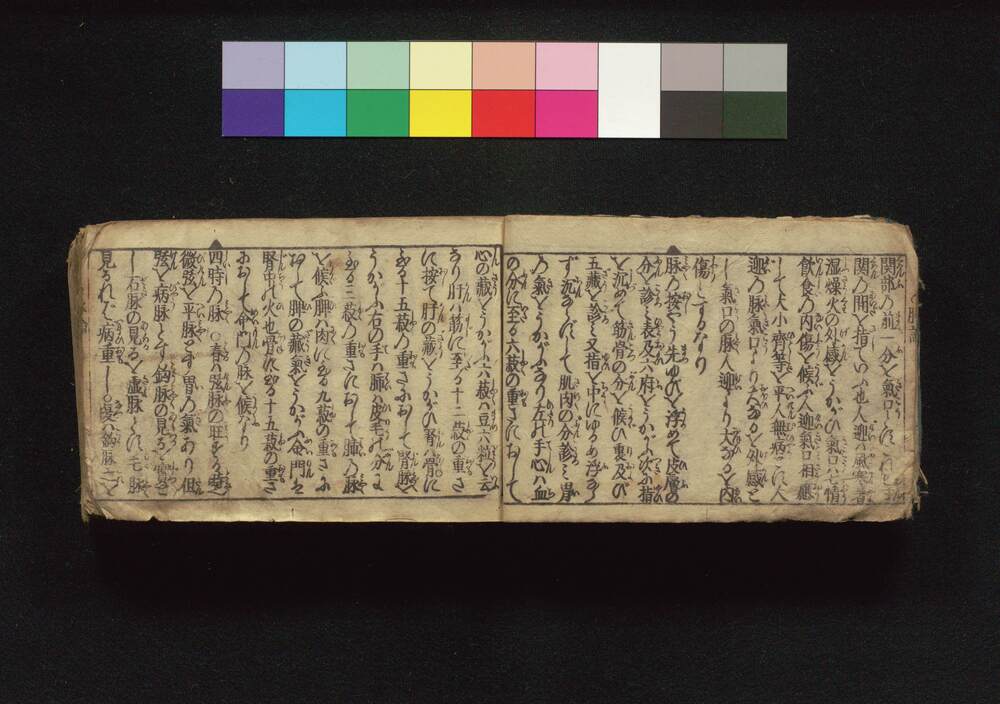 関部の前一分を氣口といふこれを主
関の間を指ていふ也人迎ハ風寒暑
湿燥火の外感をうかがひ氣口ハ七情
飲食の内傷を候ふ人迎氣口相應
して大小齊等を平人無病とす人
迎の脉氣口より大なるを外感と
し氣口の脉人迎より大なるを内
傷とするなり
脉の按やう先ゆびを浮めて皮膚の
分を診ミ表及六府をうかがふ次に指
を沉めて筋骨の分を候ひ裏及び
五藏を診ミ又指を中にゆるめ浮なら
ず沉ならずして肌肉の分診ミ胃
の氣をうかがふなり左の手心ハ血
の分に至る六菽の重さにおして
心の藏をうかがふ六菽ハ豆六粒を云
なり肝ハ筋に至る十二菽の重さ
に按て肝の藏をうかがひ腎ハ骨に
至る十五菽の重さにおして腎脉を
うかがふ右の手ハ肺ハ皮毛の分に
至る三菽の重さにおして肺の脉
を候ふ脾ハ肉に至る九菽の重さに
おして脾の藏氣をうかがふ命門ハ
腎中の火也骨に至る十五菽の重さ
におして命門の脉を候なり
四時の脉 ○春ハ弦脉の旺する時
微弦を平脉とす胃の氣あり但
弦を病脉とす鈎脉の見るを實と
し石脉の見るを虚脉とす毛脉
見るれば病重し○夏ハ鈎脉